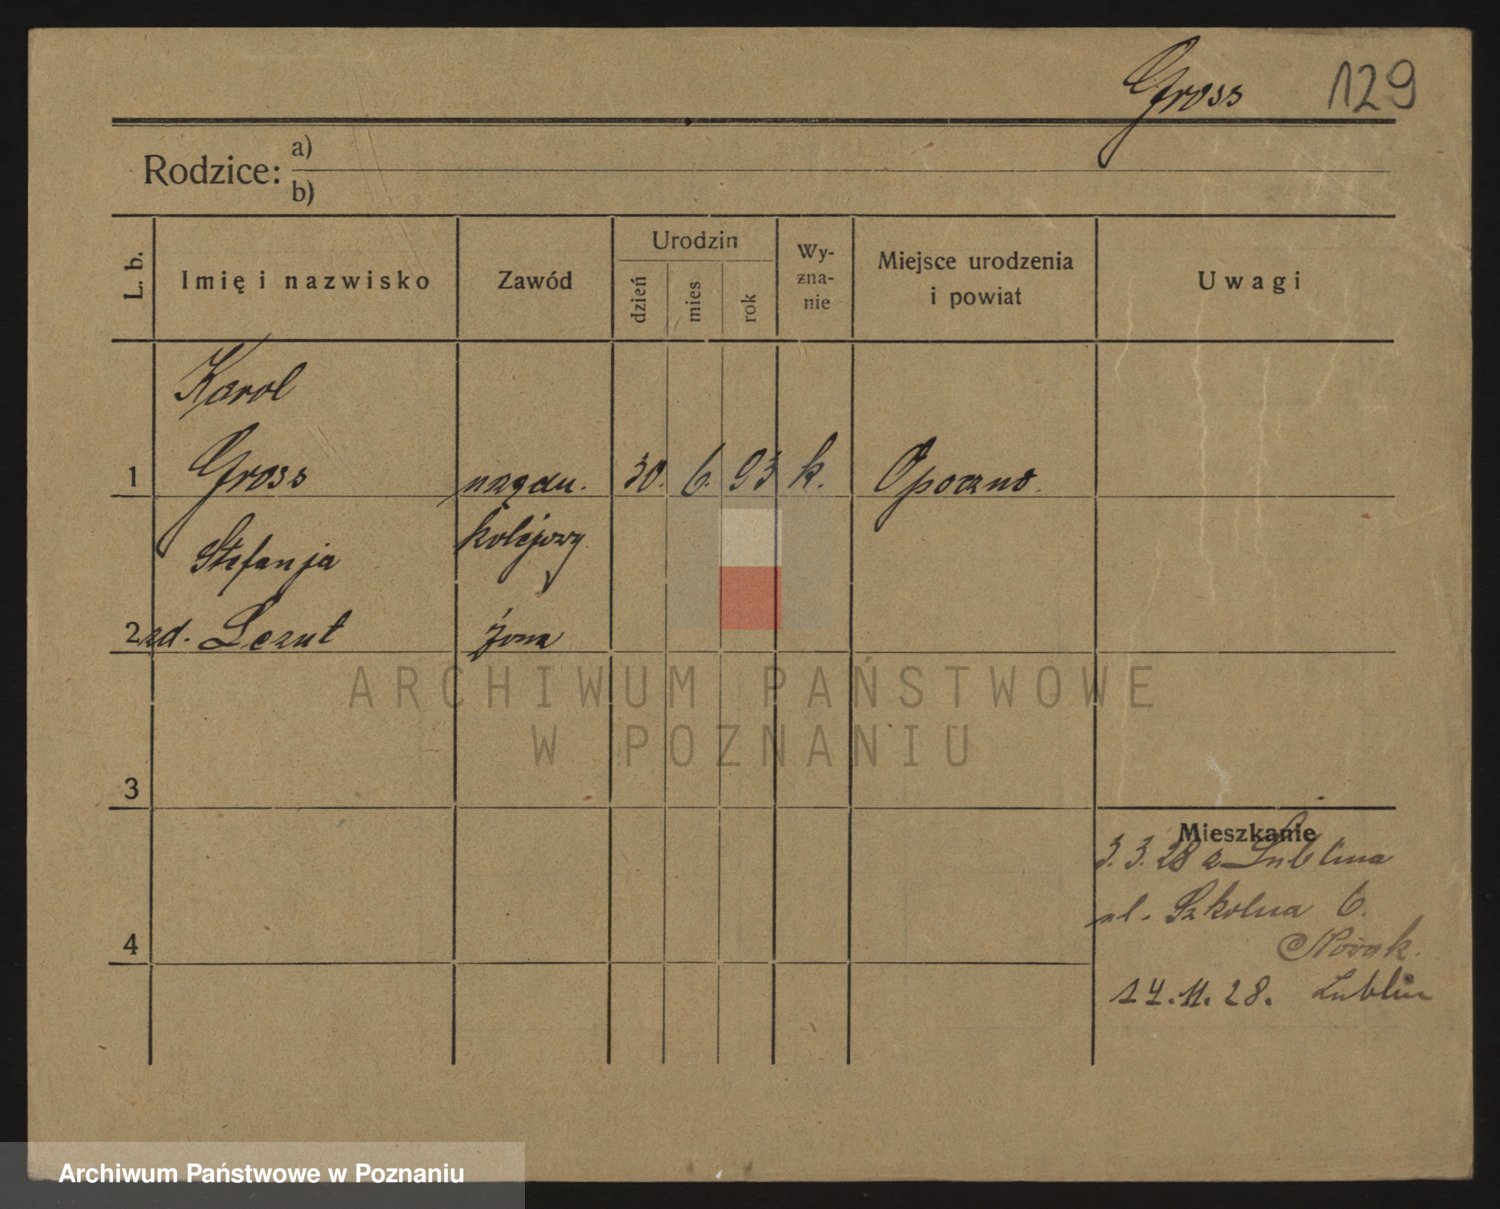 Gross 129
Rodzice: a)
b)
L. b. Imię i nazwisko Zawód Urodzin dzień mies. rok Wy-zna-nie Miejsce urodzenia i powiat Uwagi
Karol
1 Gross 30. 6. 93 k. Opoczno.
Stefanja kolejowy
2 zd. żona
ARCHIWUM PAŃSTWOWE
W POZNANIU
3
Mieszkanie
3.3.28 z Lublina
ul. Szkolna 6.
Nowak.
4
14.11.28. Lublin
Archiwum Państwowe w Poznaniu